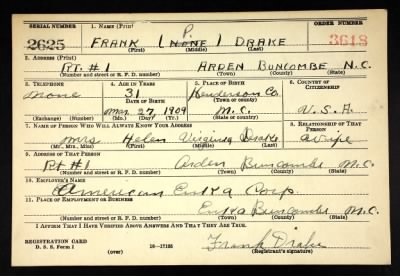 SERIAL NUMBER 1. NAME (Print) ORDER NUMBER
P.
2625 FRANK (NONE) DRAKE 3618
(First) (Middle) (Last)
2. ADDRESS (Print)
RT. #1 ARDEN BUNCOMBE N.C.
(Number and street or R. F. D. number) (Town) (County) (State)
3. TELEPHONE 4. AGE IN YEARS 5. PLACE OF BIRTH 6. COUNTRY OF CITIZENSHIP
none 31 Henderson Co.
DATE OF BIRTH (Town or county)
May 27 1909 N.C. U.S.A.
(Exchange) (Number) (Mo.) (Day) (Yr.) (State or country)
7. NAME OF PERSON WHO WILL ALWAYS KNOW YOUR ADDRESS 8. RELATIONSHIP OF THAT PERSON
Mrs Helen Virginia Drake wife
(Mr., Mrs., Miss) (First) (Middle) (Last)
9. ADDRESS OF THAT PERSON
Rt #1 Arden Buncombe N.C.
(Number and street or R. F. D. number) (Town) (County) (State)
10. EMPLOYER'S NAME
American Enka Corp
11. PLACE OF EMPLOYMENT OR BUSINESS
Enka Buncombe N.C.
(Number and street or R. F. D. number) (Town) (County) (State)
I AFFIRM THAT I HAVE VERIFIED ABOVE ANSWERS AND THAT THEY ARE TRUE.
REGISTRATION CARD
D. S. S. Form 1 (over) 16-17105 Frank Drake
(Registrant's signature)